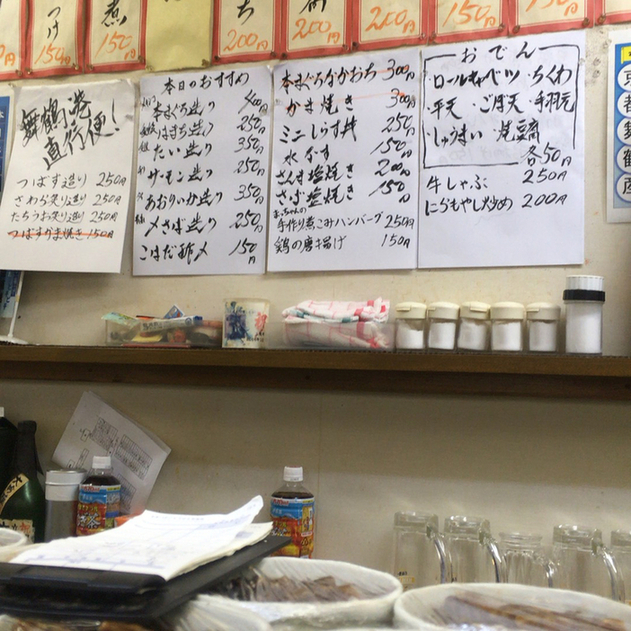 つけ 150円
煮 150円
ち 200円
200円
150円
150円
200円
舞鶴港
直行便!
つばす造り 250円
さわら炙り造り 250円
たちうお炙り造り 250円
つばすかま焼き 150円
本日のおすすめ
本まぐろ造り 400円
はまち造り 250円
たい造り 350円
サーモン造り 250円
あおりいか造り 350円
〆さば造り 250円
こはだ酢〆 150円
本まぐろなかおち 300円
かま焼き 300円
ミニしらす丼 250円
水なす 150円
さんま塩焼き 200円
さば塩焼き 150円
手作り煮こみハンバーグ 250円
鶏の唐揚げ 150円
おでん
・ロールキャベツ ・ちくわ
・平天 ・ごぼ天 ・手羽元
・しゅうまい ・焼豆腐
各50円
牛しゃぶ 250円
にらもやし炒め 200円
京都舞鶴西